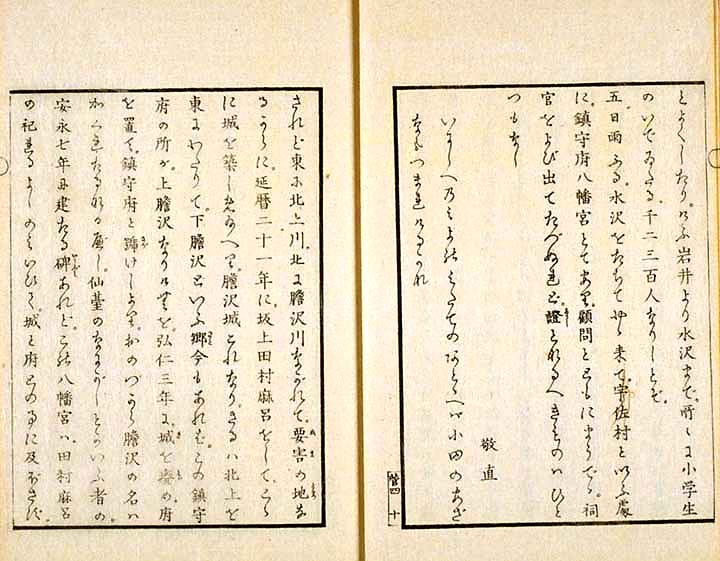 とよくしたり。けふ岩井より水沢まで。所〻に小学生
のいでゐたる。千二三百人なりしとぞ。
五日雨ふる。水沢をたちてやゝ来て。宇佐村といふ處
に。鎮守府八幡宮とてあり。顧問とともにまうでゝ。祠
官をよび出てたづぬれど。證となるべきものはひと
つもなし
敬直
いにしへの あとゝへば小田のあぜ
十
されど東に北上川。北に膽沢川ながれて。要害の地な
るからに。延暦二十一年に。坂上田村麻呂をして。こゝ
に城を築しめ給へり。膽沢城これなり。さるは北上を
東にわたりて。下膽沢といふ郷今もあれば。この鎮守
府の所が。上膽沢なりけむを。弘仁三年に。城を癈め。府
を置て。鎮守府と けしより。おのづから膽沢の名は
かくれたるなるべし。仙臺のなにがしとかいふ者の。
安永七年に建たる碑あれど。この八幡宮は。田村麻呂
の祀れるよしのみいひて。城と府との事に及ばず。